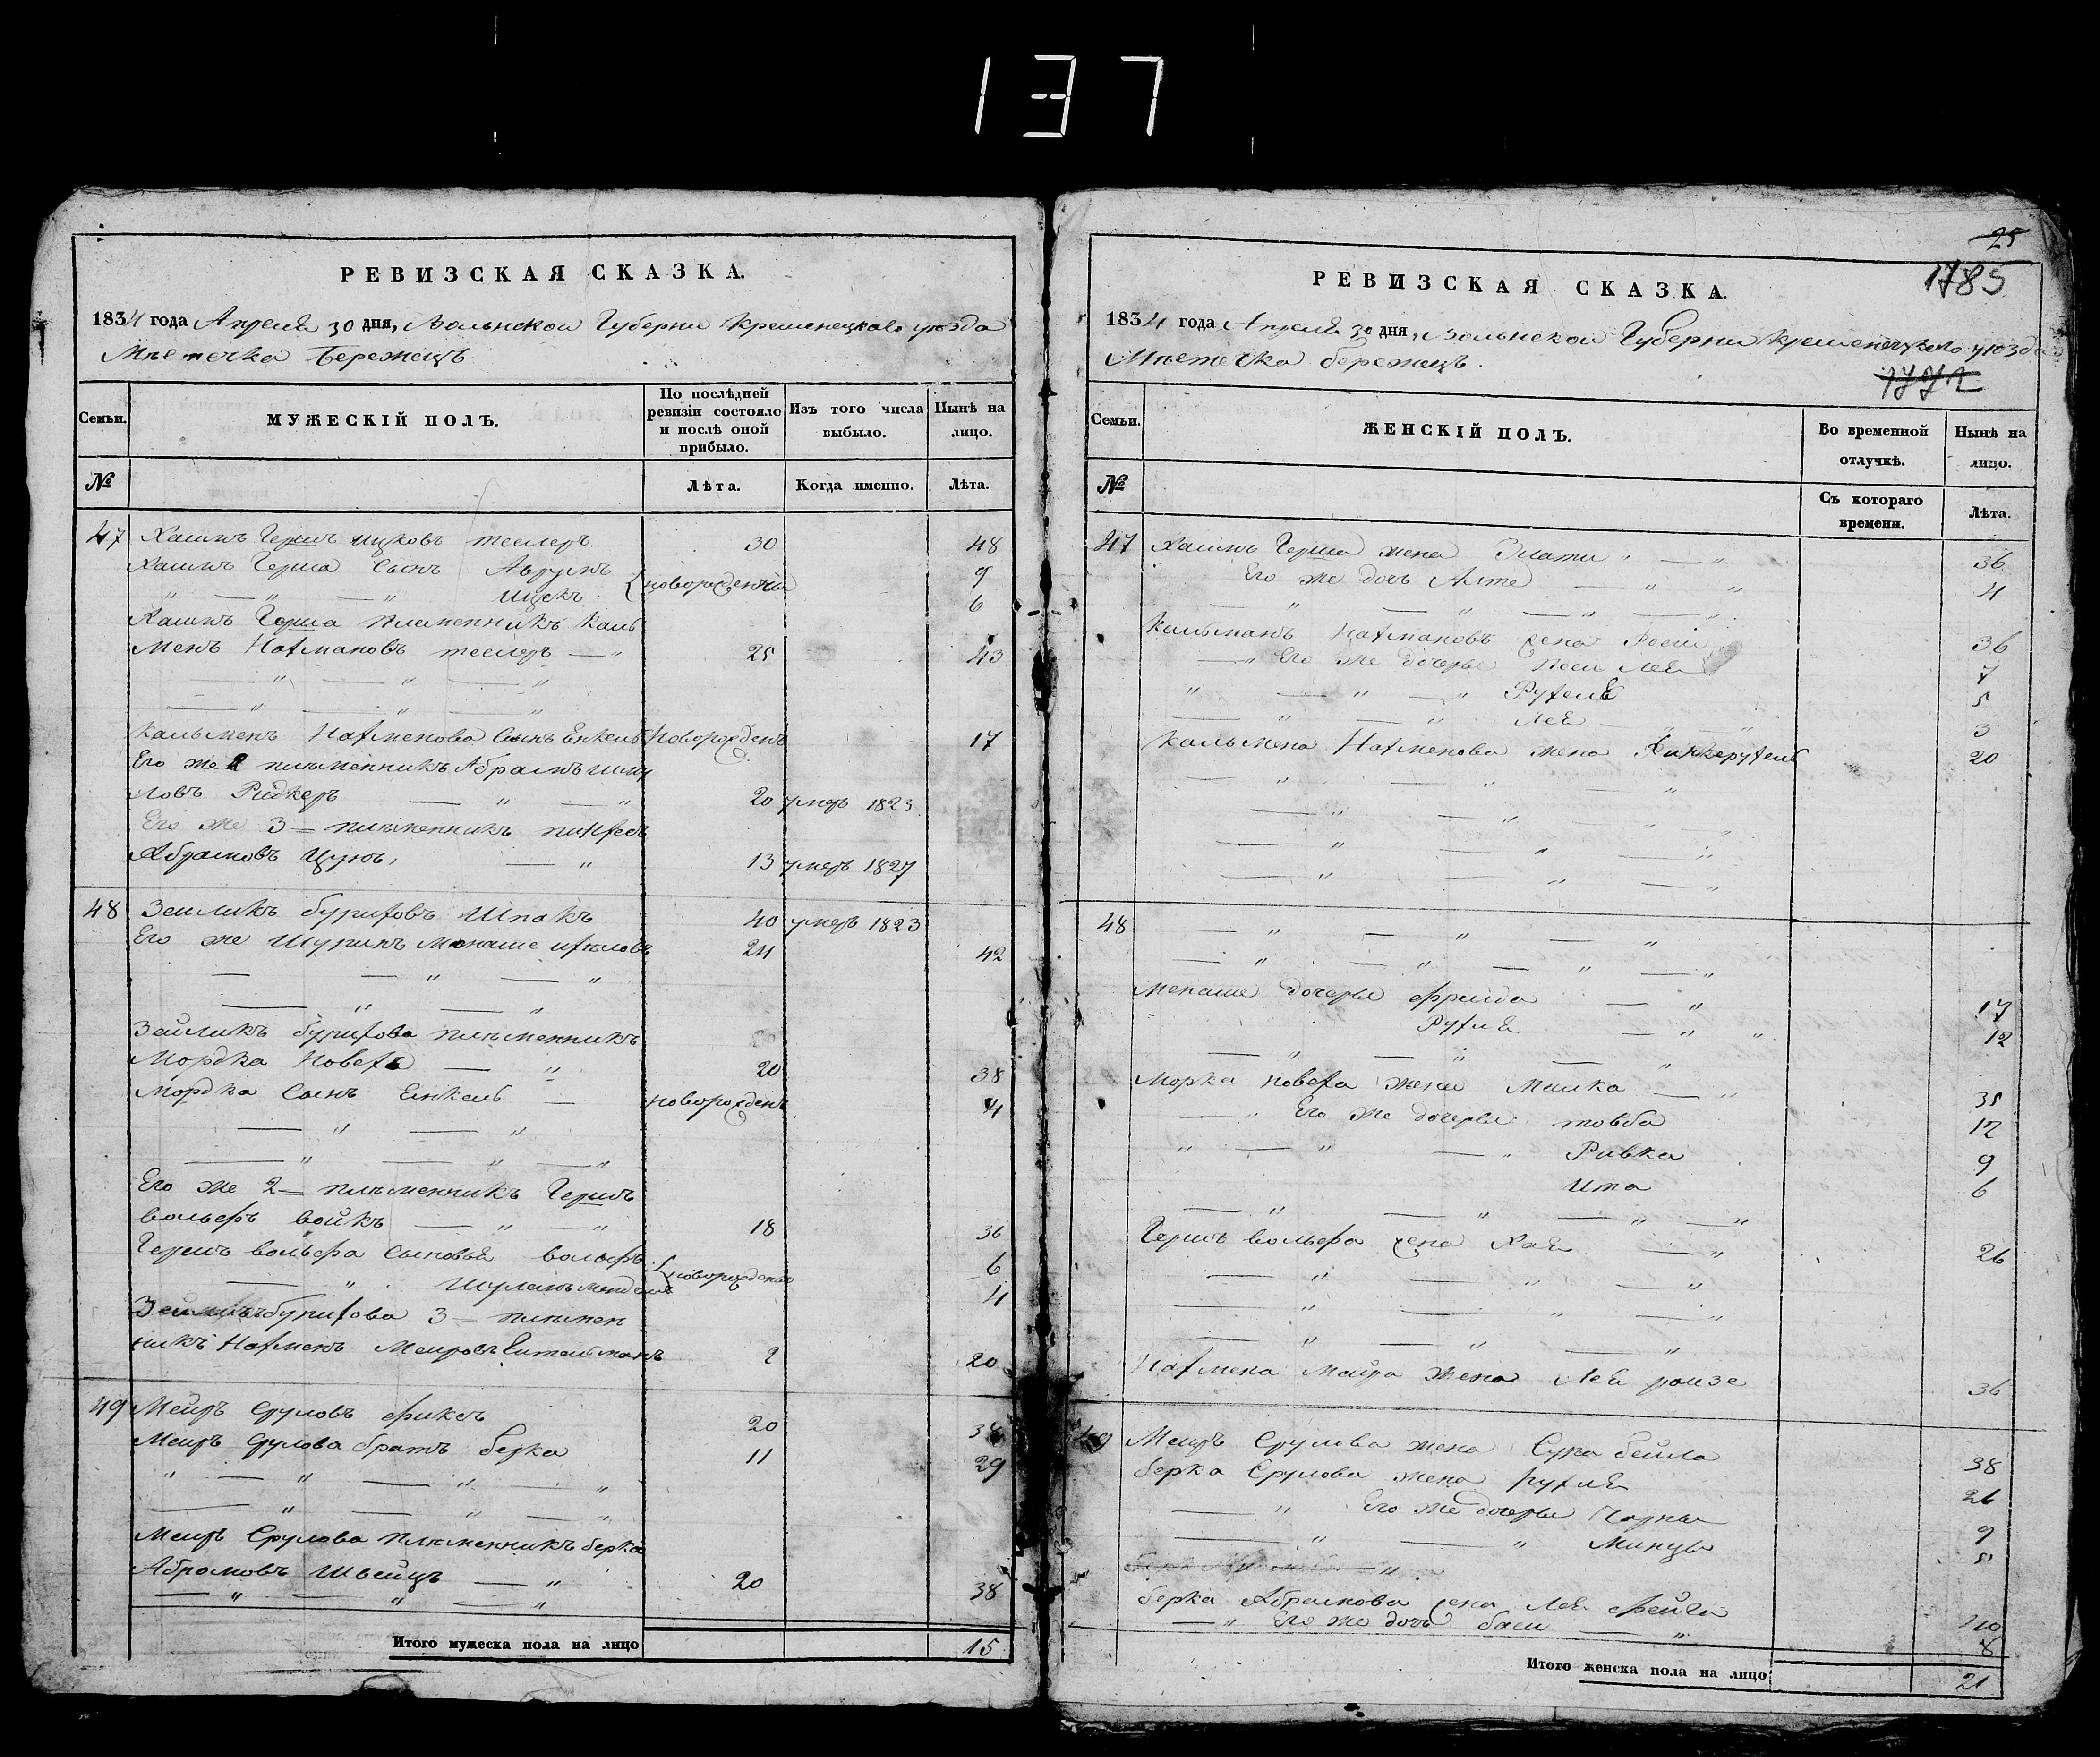 137
РЕВИЗСКАЯ СКАЗКА.
1834 года Апреля 30 дня, Волынской Губерни Кременецкаго уезда
Местечка Бережецъ
Семьи.
МУЖЕСКІЙ ПОЛЪ.
По послѣдней ревизіи состояло и послѣ оной прибыло.
Изъ того числа выбыло.
Нынѣ на лицо.
№
Лѣта.
Когда именно.
Лѣта.
47 Хаимъ Гершъ Ицковъ теслеръ 30 48
Хаимъ Герша Сынъ Аврумъ новорожденны 9
" — " — " Ицекъ 6
Хаимъ Герша племенникъ Каль
менъ Нахмановъ теслеръ — " 25 43
— " — " — "
— " — " — "
Кальменъ Нахменова Сынъ Енкель Новорожденъ 17
Его же 2 племенникъ Абрамъ
20 умеръ 1823
Его же 3 — племенникъ пинхесъ
Абрамовъ — " 13 умеръ 1827
48 Зеиликъ бурихъ Шпакъ 40 умеръ 1823
Его же Шуринъ Менаше 24 42
— — " — "
— " — "
Зейликъ бурихова племенникъ
Мордка Новехъ — " 20 38
Мордка Сынъ Енкель — новорожденъ 4
— " — "
— " — " — "
Его же 2 — племенникъ Гершъ
вольфъ войкъ — " — " 18 36
Гершъ вольфа Сыновья вольфъ новорожденъ 6
— " Шулемъ мендель 4
Зейликъ бурихова 3 — племен
никъ Нахменъ Меировъ 2 20
49 Мейръ Сруловъ фиксъ 20 38
Меиръ Срулова братъ берка 11 29
" — " — " — "
— " — " — "
Меиръ Срулова племенникъ берка
Абрамовъ Швейцъ — " 20 38
— " — " — "
Итого мужеска пола на лицо 15
25
1785
РЕВИЗСКАЯ СКАЗКА.
1834 года Апреля 30 дня, Волынской Губерни Кременецкаго уезда
Местечка бережецъ.
Семьи.
ЖЕНСКІЙ ПОЛЪ.
Во временной отлучкѣ.
Нынѣ на лицо.
№
Съ котораго времени.
Лѣта.
47 Хаимъ Герша жена Злати " — " 36
Его же дочь Алте — " " 4
— " — " — " — "
Кальманъ Нахмановъ жена 36
— " Его же дочерье Песи Лея 7
" — " — " Рухель 5
— " — " Лея — " 3
Кальмена Нахменова жена 20
— " — " — "
— " — " — "
— " — " — "
— " — " — "
48 — " — " — "
— " — " — " — "
Менаше дочерье фрейда — " 17
Рухля — " " 12
— " — " — "
Морка новеха жена Милка — " 35
— " Его же дочерье товба 12
" — " — " Ривка 9
Ита 6
— " — " — " — "
Гершъ вольфа жена Хая — " 26
— " — " — "
— " — " — "
— " — " — "
Нахмена Мейра Жена Лея роизе 36
49 Меиръ Срулова жена Сура бейла 38
берка Срулова жена рухля 26
— " Его же дочерье Чарна 9
— " — " Минця 5
берка Абрамова жена Лея фейга
— " Его же дочь баси — " 8
Итого женска пола на лицо 21